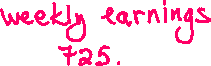 weekly earnings
725.